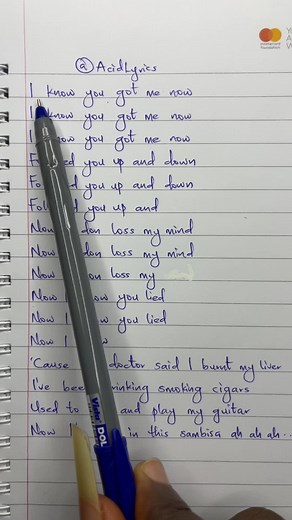 @AcidLyrics
I know you got me now
I know you got me now
I know you got me now
Fo ed you up and down
Fo d you up and down
Foll d you up and
Now don loss my mind
Now don loss my mind
Now on loss my
Now I ow you lied
Now I ow you lied
Now I w
'Cause doctor said I burnt my liver
I've bee rinking smoking cigars
Used to and play my guitar
Now I in this sambisa ah ah ah...
mastercard
foundation
DOL